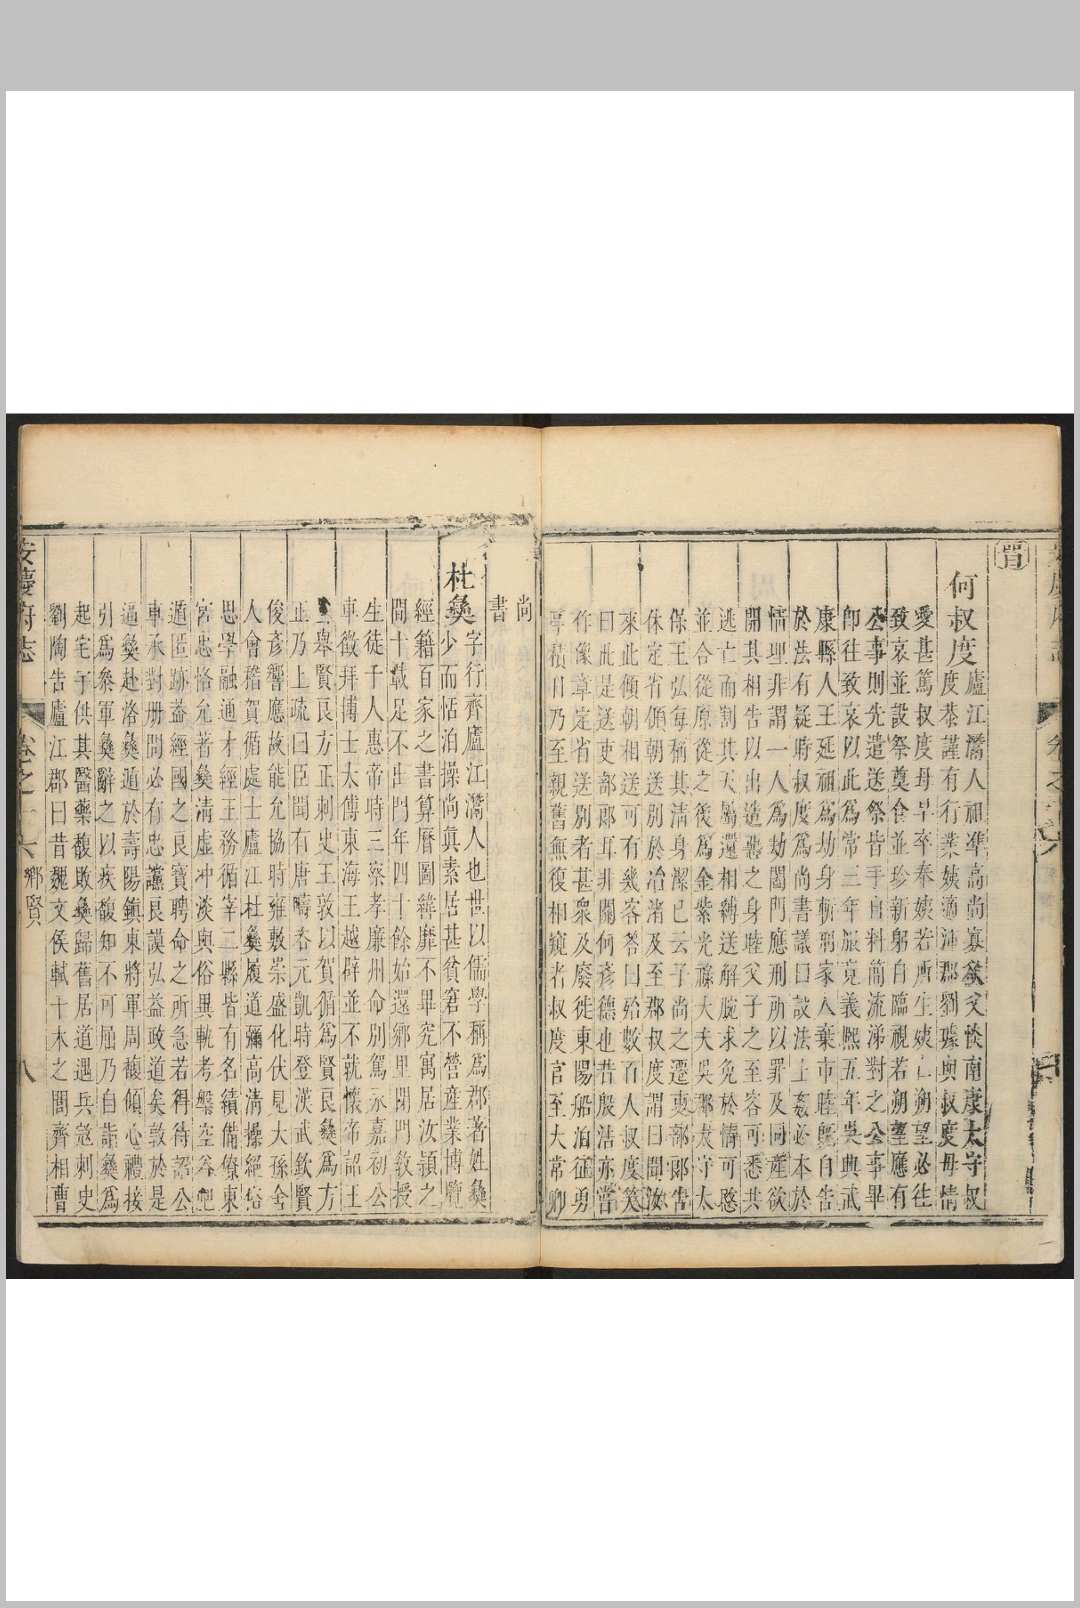 晋
何叔度廬江灊人祖準高尚寡欲父恢南康太守叔
度恭謹有行業姨適沛郡劉璩與叔度母情
愛甚篤叔度母早卒奉姨若所生姨亡朔望必往
致哀並設祭奠食並珍新躬自臨視若朔望應有
公事則先遣送祭皆手自料簡流涕對之公事畢
即往致哀以此為常三年服竟義熙五年吳興武
康縣人王延祖為劫身斬刑家人棄市睦既自告
於法有疑時叔度為尚書議曰設法止姦必本於
情理非謂一人為劫闔門應刑所以罪及同產欲
開其相告以出造惡之身睦父子之至容可悉共
逃亡而割其天屬還相縛送解腕求免於情可愍
並合從原從之後為金紫光祿大夫吳郡太守太
保王弘每稱其清身潔己云子尚之遷吏部郎告
休定省傾朝送別於冶渚及至郡叔度謂曰聞汝
來此傾朝相送可有幾客答曰殆數百人叔度笑
曰此是送吏部郎耳非關何彥德也昔殷浩亦嘗
作豫章定省送別者甚衆及廢徙東陽船泊征虜
亭積日乃至親舊無復相窺者叔度官至太常卿
尚
書
杜彝字行齊廬江灊人也世以儒學稱為郡著姓彝
少而恬泊操尚眞素居甚貧窘不營產業博覽
經籍百家之書算曆圖緯靡不畢究寓居汝潁之
間十載足不出門年四十餘始還鄉里閉門教授
生徒千人惠帝時三察孝廉州命別駕永嘉初公
車徵拜博士太傅東海王越辟並不就懷帝詔王
公舉賢良方正刺史王敦以賀循為賢良彝為方
正乃上疏曰臣聞有唐疇咨元凱時登漢武欽賢
俊彥響應故能允協時雍敷崇盛化伏見大孫舍
人會稽賀循處士廬江杜彝履道彌高清操絕俗
思學融通才經王務循宰二縣皆有名績備僚東
宮忠恪允著彝清虛冲淡與俗異軌考槃空谷肥
遁匿跡蓋經國之良寶聘命之所急若得待詔公
車承對册問必有忠讜良謨弘益政道矣敦於是
逼彝赴洛彝遁於壽陽鎮東將軍周馥傾心禮接
引為參軍彝辭之以疾馥知不可屈乃自詣彝為
起宅宇供其醫藥馥敗彝歸舊居道遇兵寇刺史
劉陶告廬江郡曰昔魏文侯軾干木之閭齊相曹
安慶府志
卷之十六
鄉賢
八